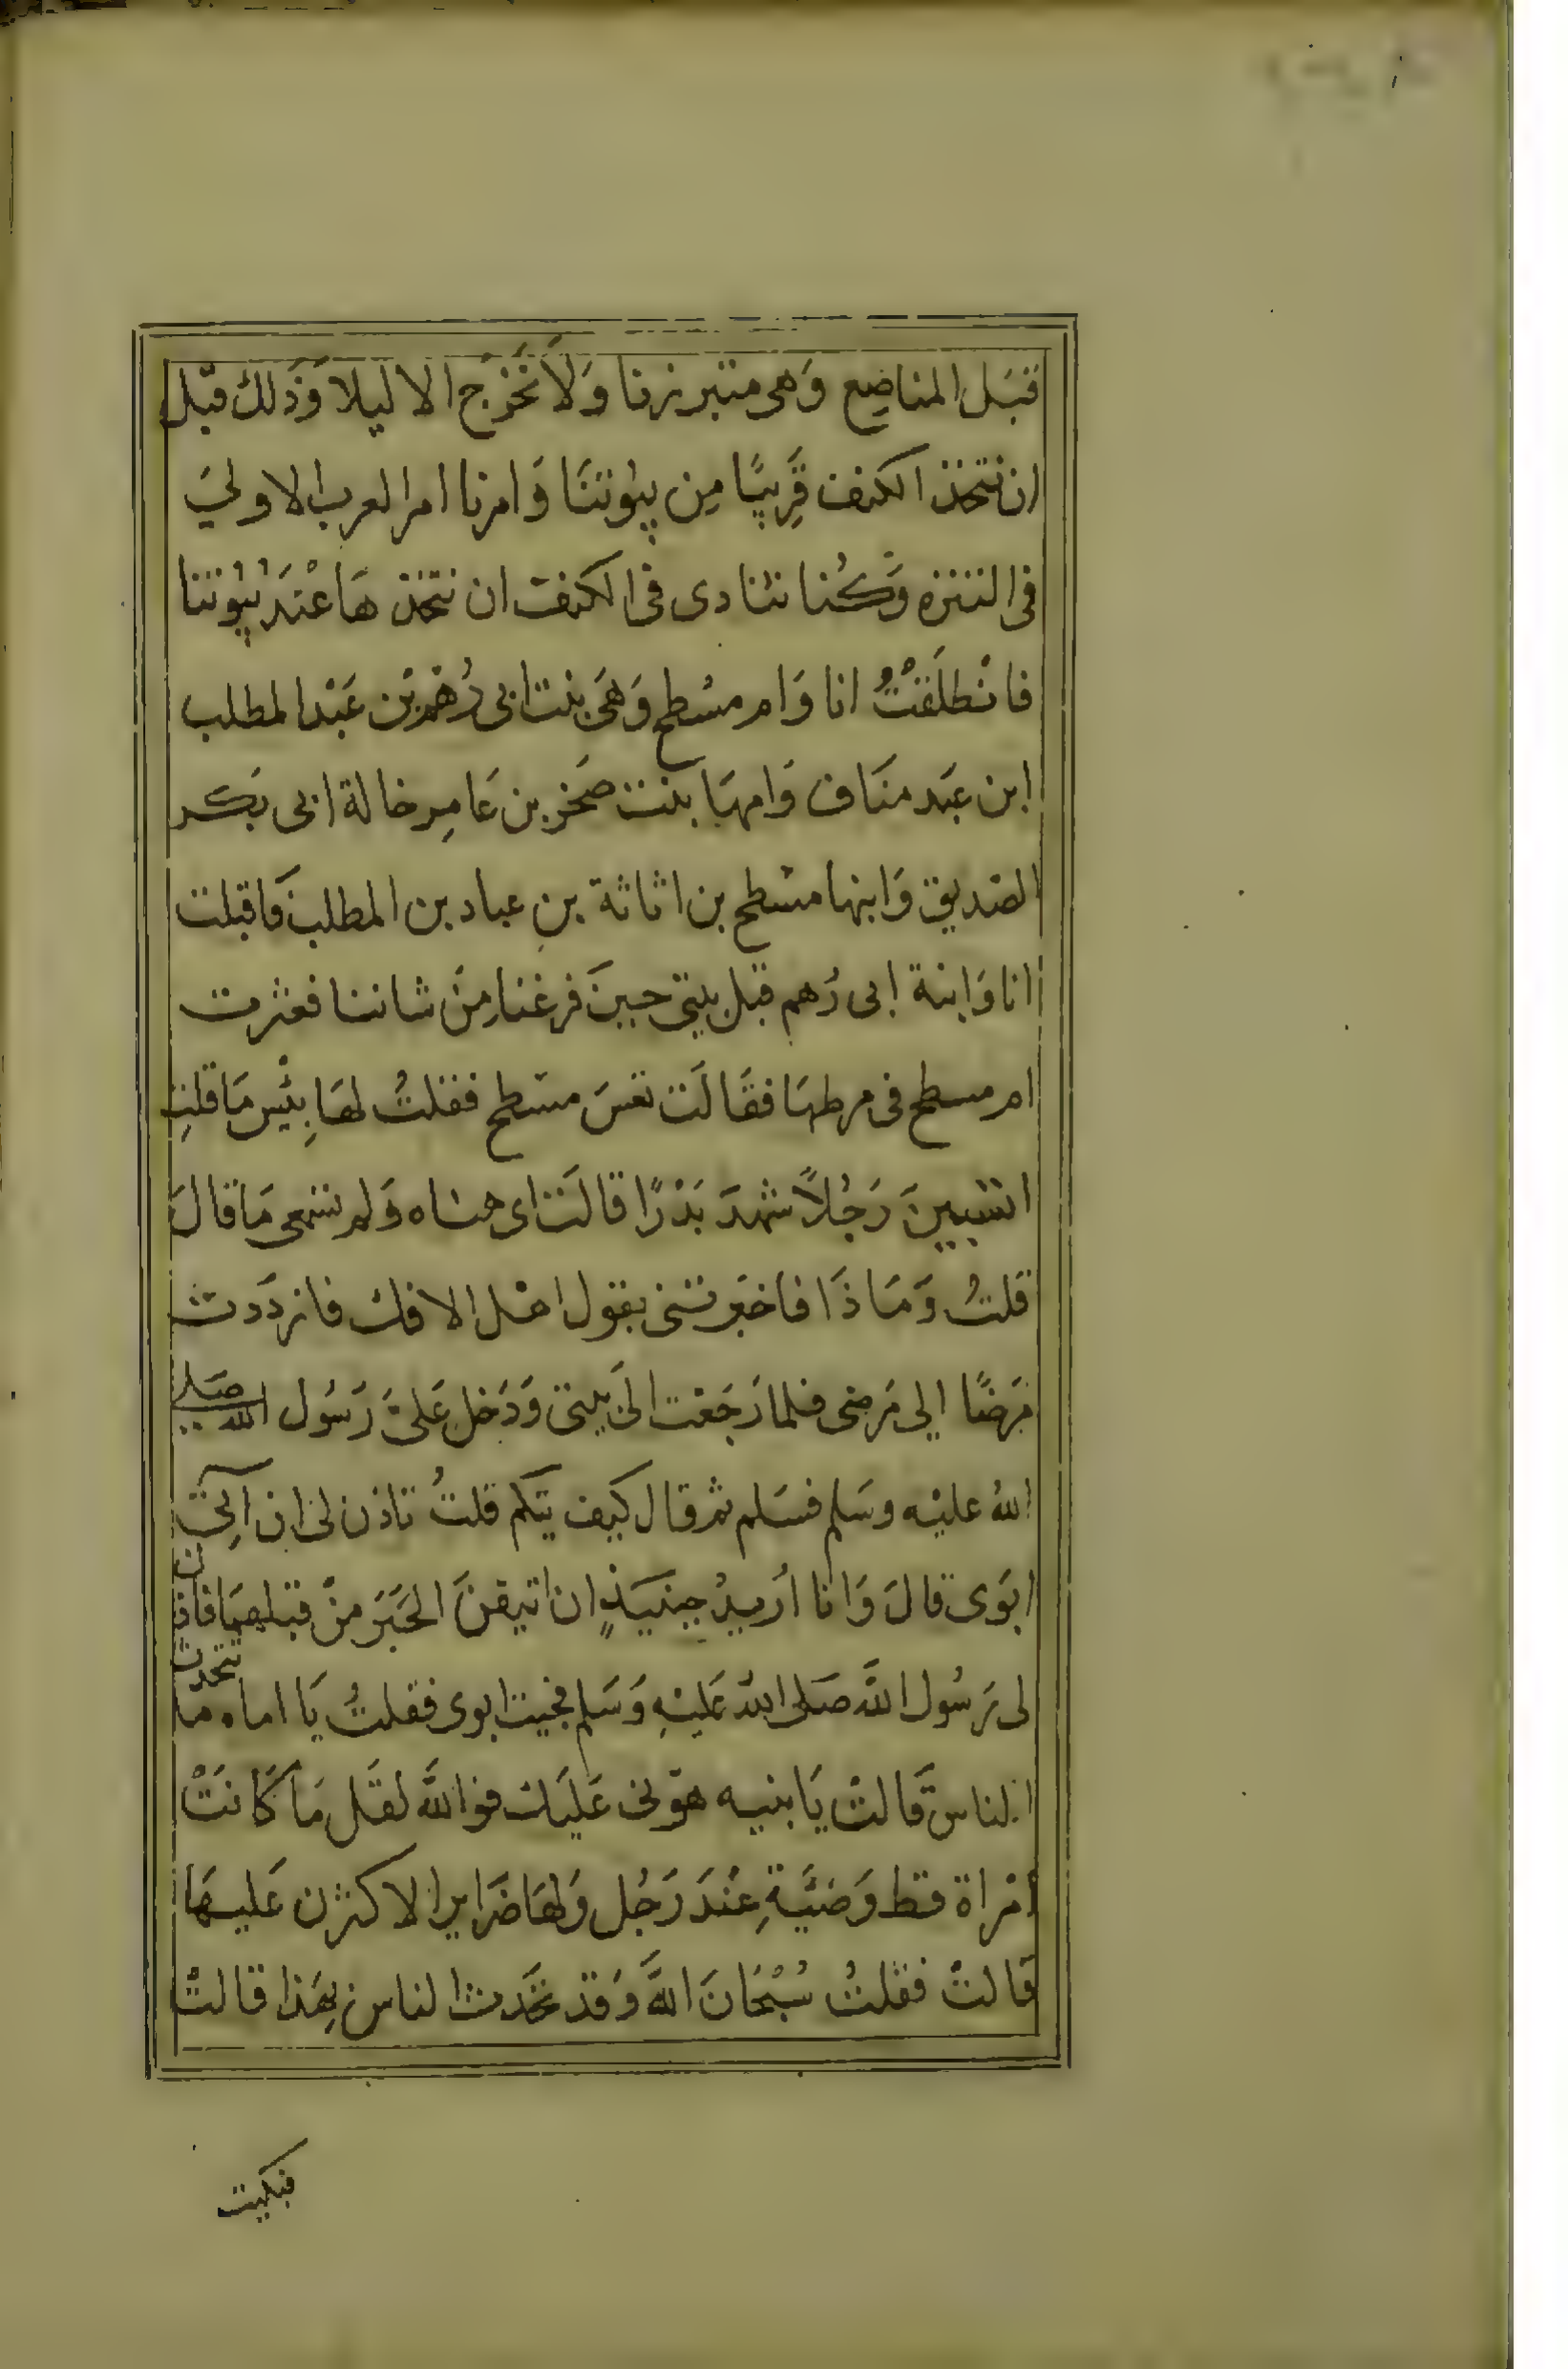 قبَل المناضِع وَهى متبرزنا وَلاَنَخرُج الا ليلا وَذَلك قبل
ان نتخذ الكنف قَرِيبًا مِن بيُوتنَا وَامرنا امر العرب الاولي
فى التنزه وَكُنا نتادى فى الكنف ان نتخذها عنْد بُيُوتنا
فانْطلَقتُ انا وَام مسْطح وَهىَ بنت ابى رُهْم بْن عَبْد المطلب
ابن عَبد منَاف وَامهَا بنت صَخر بن عَامِر خالة ابى بَكر
الصّديق وَابنها مسْطح بن اثاثة بنِ عباد بن المطلب فَاقبلت
انا وَابنة ابى رُهم قبل بيتى حينَ فرغنا مِنْ شاننا فعثرت
ام مسطح فى مرطهَا فقَالَت تعسَ مسْطح فقلتُ لهَا بِئْس مَا قلتِ
اتسبينَ رَجُلاً شهدَ بَدْرًا قالَت اى هنتاه وَلم تسْمعى مَا قالَ
قلتُ وَمَاذَا فاخبَرتنى بقول اهْل الافك فازدَدت
مَرضًا الي مَرضى فلما رَجَعت الىَ بيتى وَدَخل عَلىَّ رَسُول الله صَلي
اللهُ عليْه وسَلم فسَلم ثم قال كيف تيكم قلتُ تاذن لى ان آتِىَ
ابَوى قالَ وَانا اُريدُ حِينَيذٍ ان اتيقنَ الخَبَرَ منْ قبَلهِمَا فاذن
لى رَسُول اللَّه صَلى اللهُ عَليْهِ وَسَلم فجيت ابوى فقلتُ يَا اماه ما تتحدث
الناس قَالتْ يَا بنيه هوّنى عَليَك فوالله لقَل مَا كَانَتْ
امْراة قط وَضيَّةِ عنْدَ رَجُل وَلهَا ضَراير الا كثرن عَليهَا
قَالتْ فقلتُ سُبْحَانَ اللَّه وَقَد تحَدث الناس بِهَذا قالتْ
فبكيت